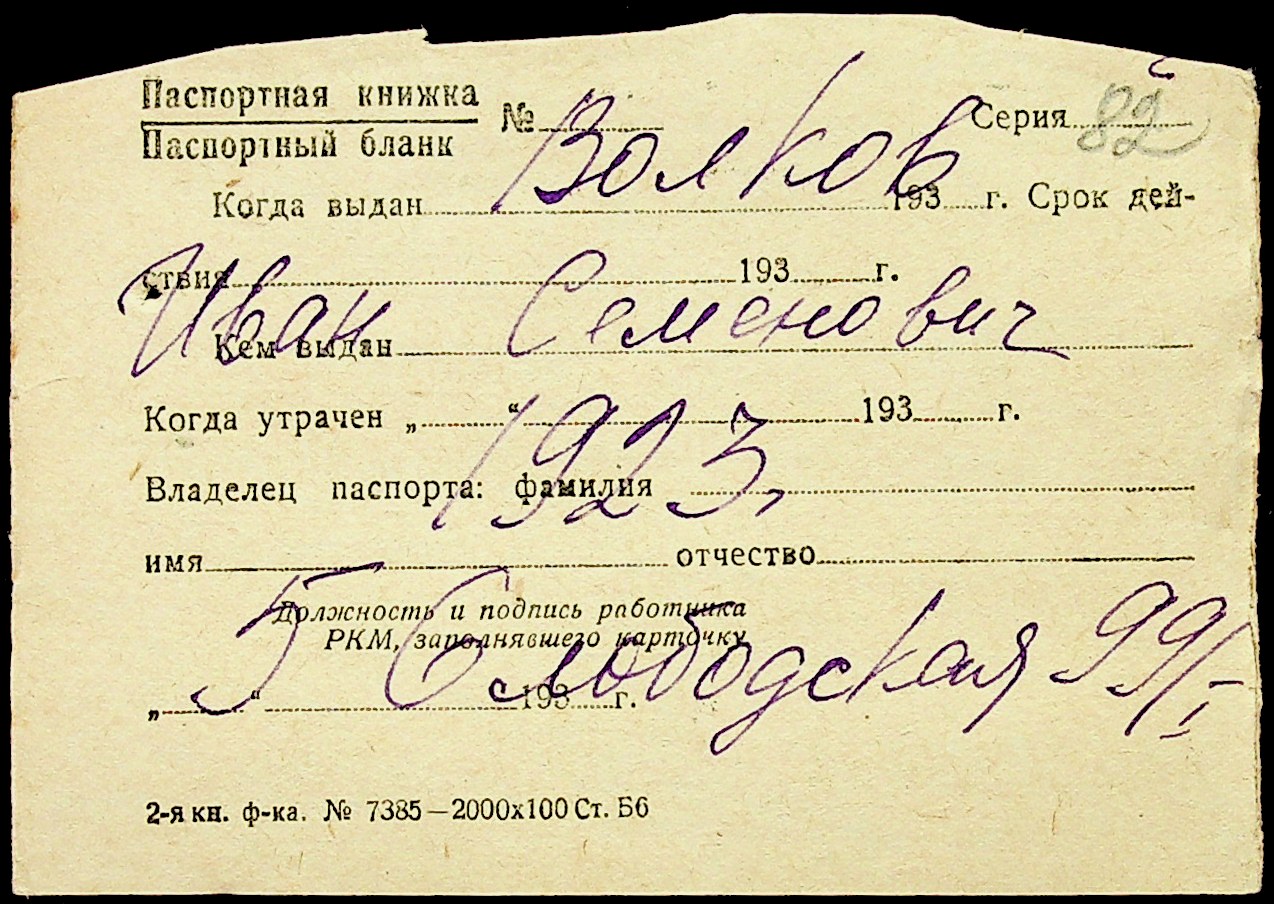 Паспортная книжка
Паспортный бланк
№ Серия 82
Волков
Когда выдан 193 г. Срок дей-
ствия 193 г.
Иван Семенович
Кем выдан
Когда утрачен „ “ 193 г.
1923,
Владелец паспорта: фамилия
имя отчество
Должность и подпись работника
РКМ, заполнявшего карточку
5 Слободская 99/I
„ “ 193 г.
2-я кн. ф-ка. № 7385—2000х100 Ст. Б6